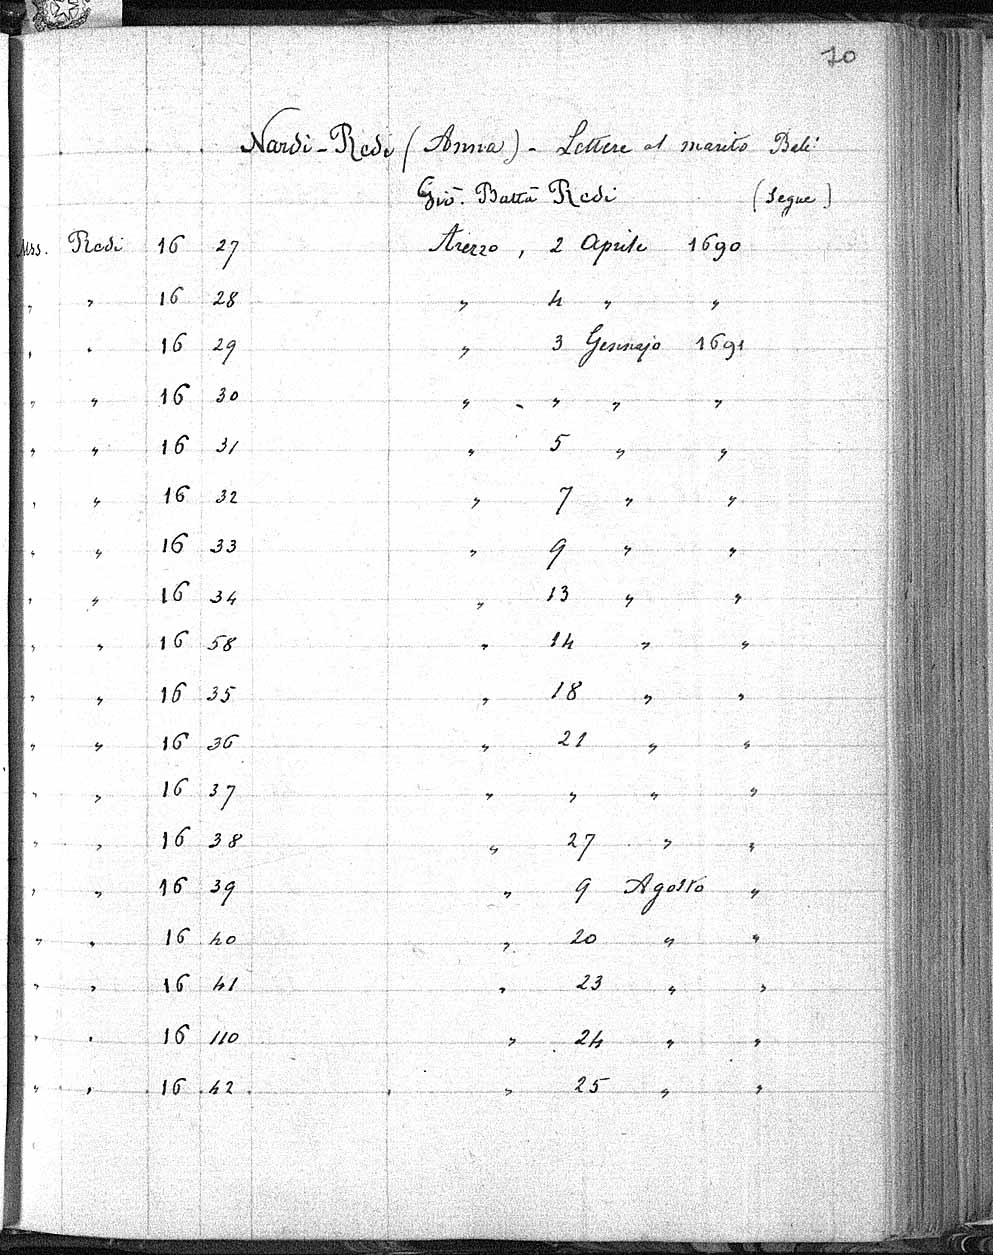 70
Nardi-Redi (Anna) - Lettere al marito Balì
Gio. Batta Redi (Segue)
Mss. Redi 16 27 Arezzo, 2 Aprile 1690
" " 16 28 " 4 " "
" " 16 29 " 3 Gennajo 1691
" " 16 30 " " " "
" " 16 31 " 5 " "
" " 16 32 " 7 " "
" " 16 33 " 9 " "
" " 16 34 " 13 " "
" " 16 58 " 14 " "
" " 16 35 " 18 " "
" " 16 36 " 21 " "
" " 16 37 " " " "
" " 16 38 " 27 " "
" " 16 39 " 9 Agosto "
" " 16 40 " 20 " "
" " 16 41 " 23 " "
" " 16 110 " 24 " "
" " 16 42 " 25 " "